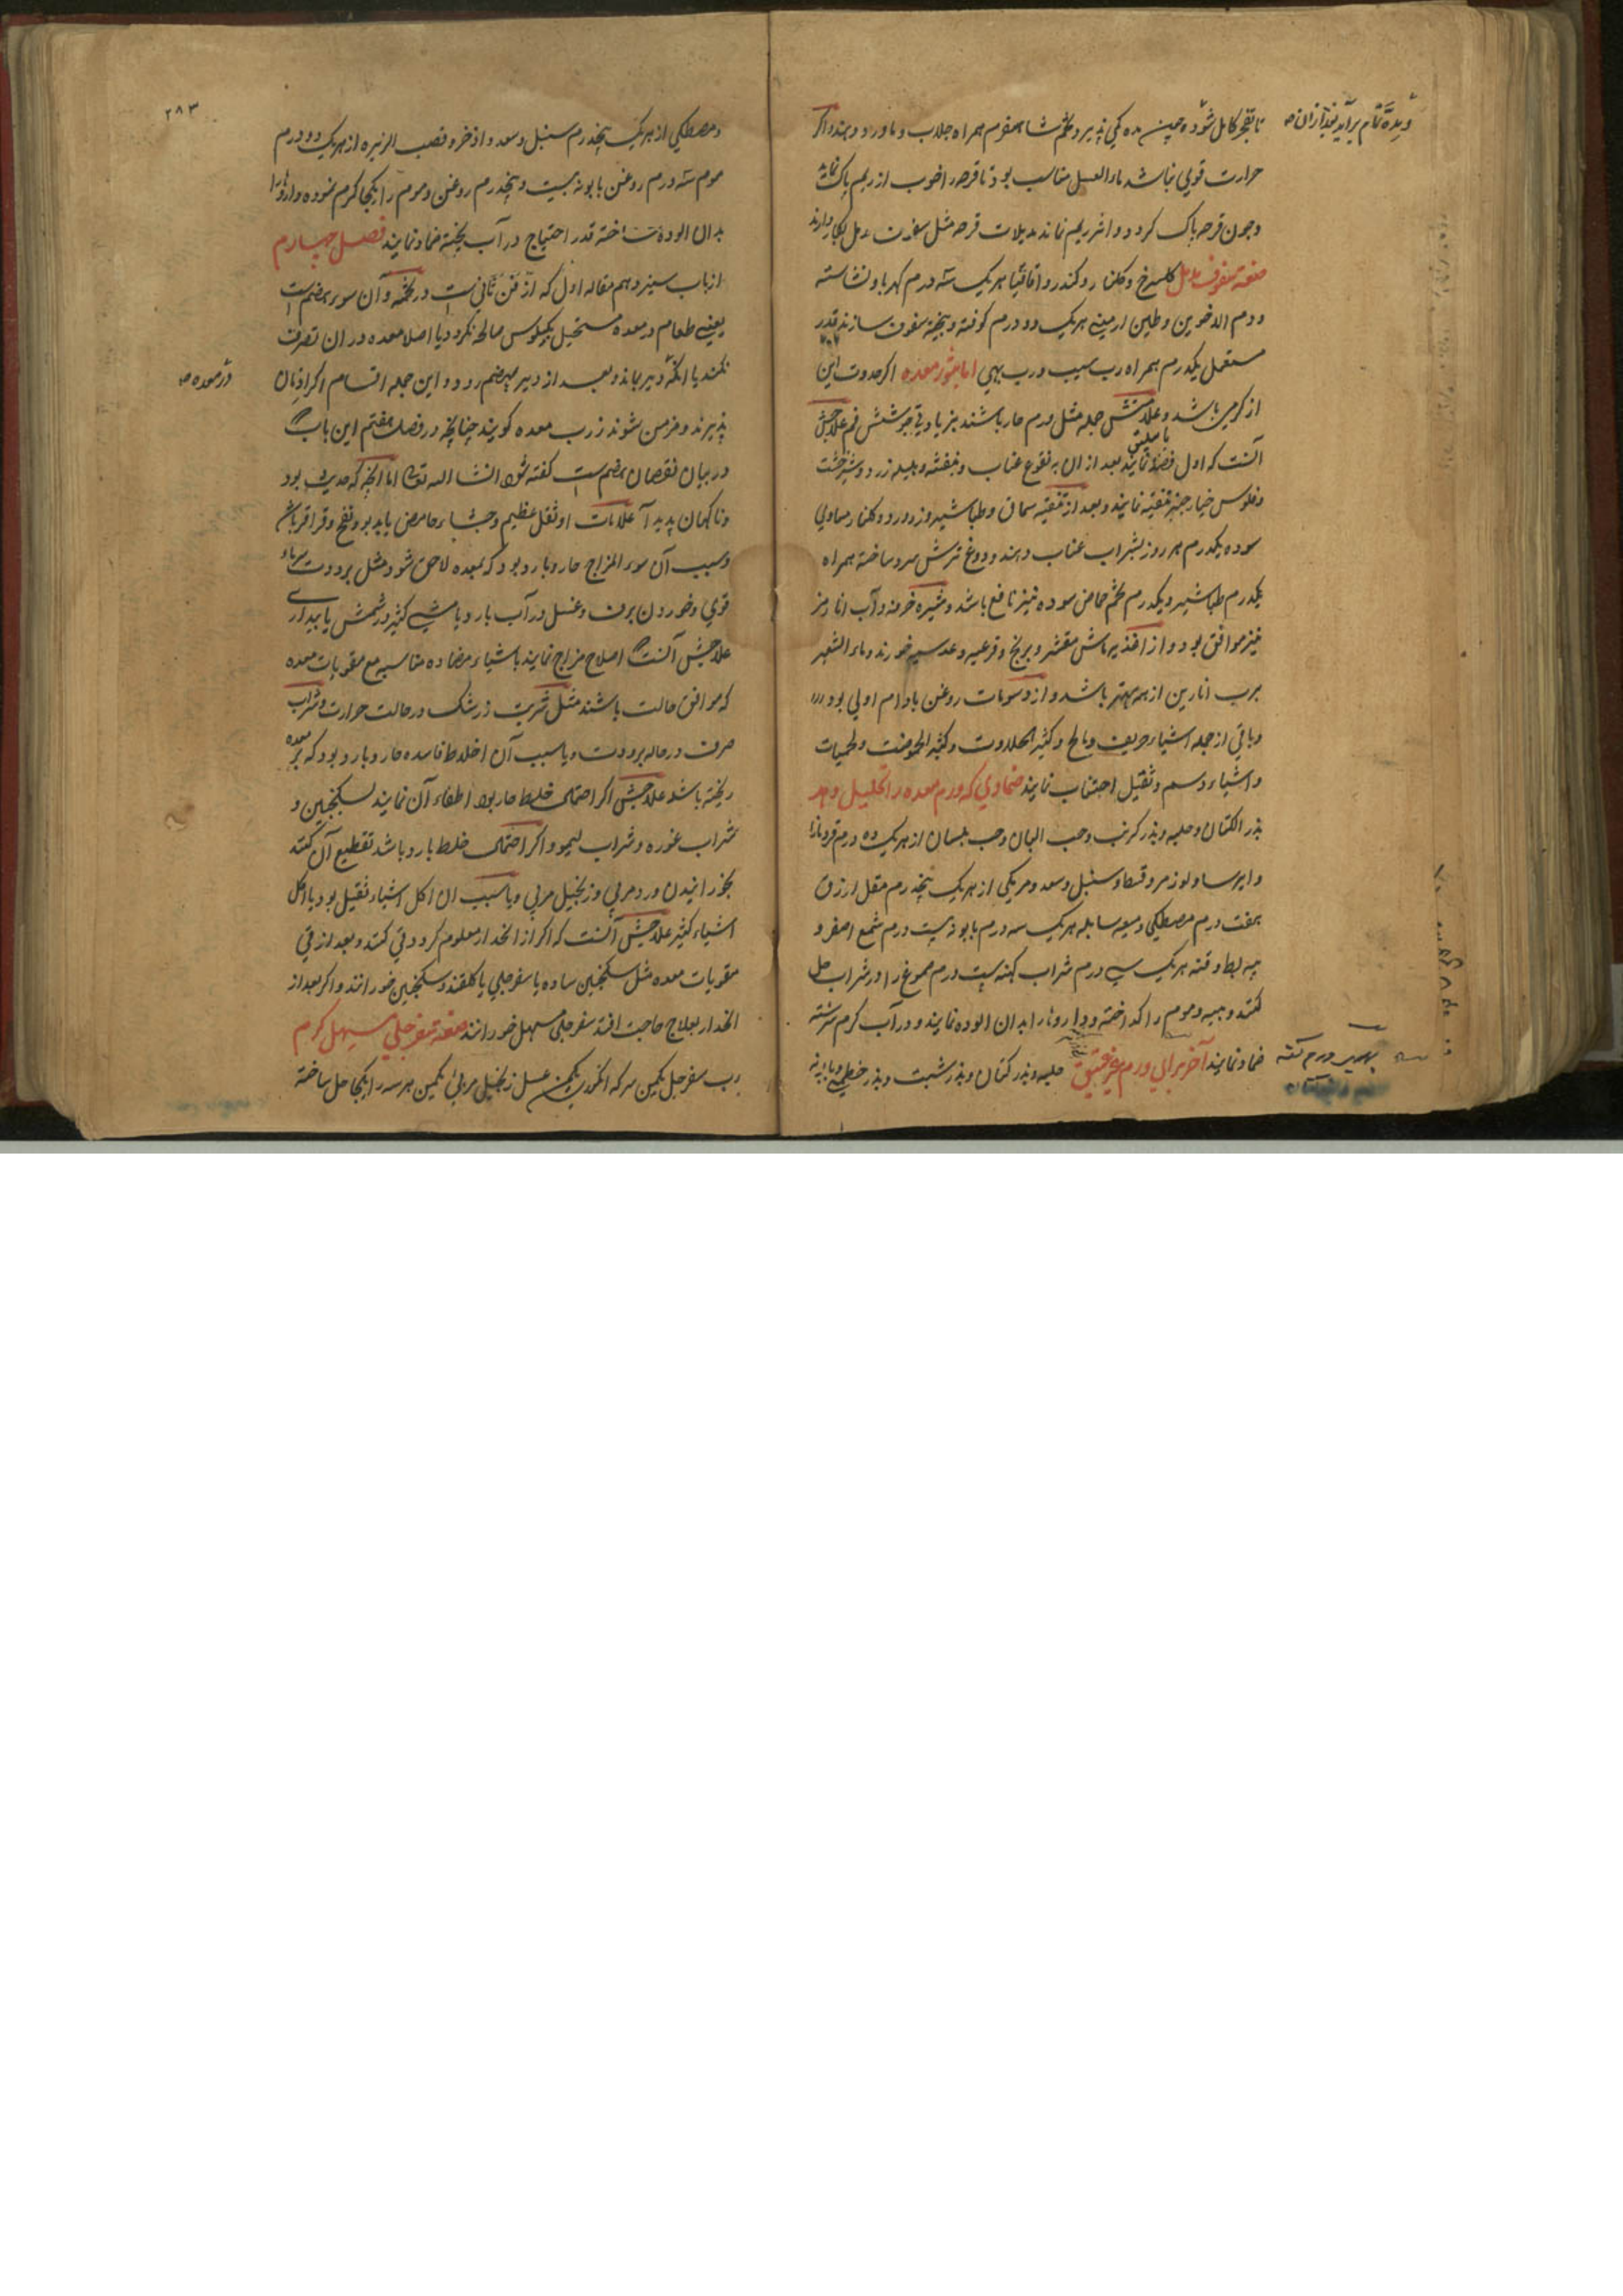 تا نضج کامل شود و چون مده کمی پذیرد تخم شاهسفرم همراه جلاب و ماورد دهند و اکر
حرارت قوی نباشد ماء العسل مناسب بود تا قرحه را خوب از ریم پاک نماید
و چون قرحه پاک کردد و اثر ریم نماند مدملات قرحه مثل سفوف مدمل بکار دارند
صفة سفوف مدمل کلسرخ و کلنار و کندر و اقاقیا هریک سه درم کهربا و نشاسته
و دم الاخوین و طین ارمینی هریک دو درم کوفته و بیخته سفوف سازند قدر
مستعمل یکدرم همراه رب سیب و رب بهی اما بثور معده اکر حدوث این
از کرمی باشد و علامتش جمله مثل ورم حار باشند بزیادتی جوشش فم علاجش
آنست که اول فصد باسلیق نمایند بعد از ان به نقوع عناب و بنفشه و هلیله زرد و شیرخشت
و فلوس خیارچنبر تنقیه نمایند و بعد از تنقیه سماق و طباشیر و زرورد و کلنار مساوی
سوده یکدرم هر روز بشراب عناب دهند و دوغ ترش سرد ساخته همراه
یکدرم طباشیر و یکدرم تخم حماض سوده نیز نافع باشد و شیره خرفه و آب انار مز
نیز موافق بود و از اغذیه ماش مقشر و برنج و قرعیه و عدسیه خورند و ماء الشعیر
برب انارین از همه بهتر باشد و از دسومات روغن بادام اولی بود
و باقی از جمله اشیاء حریف و مالح و کثیر الحلاوت و کثیر الحموضت و لحمیات
و اشیاء دسم و ثقیل اجتناب نمایند ضمادی که ورم معده را تحلیل دهد
بذر الکتان و حلبه و بذر کرنب و حب البان و حب بلسان از هریک ده درم قردمانا
و ایرسا و لوز مر و قسط و سنبل و سعد و مر مکی از هریک پنجدرم مقل ارزق
هفت درم مصطکی و میعه سایله هریک سه درم بابونه بیست درم شمع اصفر و
پیه بط و قنه هریک سی درم شراب کهنه بیست درم صموغ را در شراب حل
کنند و پیه و موم را کداخته و داروها را بدان الوده نمایند و در آب کرم سرشته
ضماد نمایند آخر برای ورم حلبه و بذر کتان و بذر شبت و بذر خطمی و بابونه
و مده تمام برآید بعد ازان
۲۸۳
و مصطکی از هریک پنجدرم سنبل و سعد و اذخر و قصب الزریره از هریک دو درم
موم سه درم روغن بابونه بیست و پنجدرم روغن و موم را یکجا کرم نموده داروها را
بدان الوده ساخته قدر احتیاج در آب پخته ضماد نمایند فصل چهارم
از باب سیزدهم مقاله اول که از فن ثانی است در تخمه و آن سوء هضم است
یعنی طعام در معده مستحیل بکیلوس صالح نکردد یا اصلا معده در ان تصرف
نکند یا انکه دیر بماند و بعد از دیر بهضم رود و این جمله اقسام اکر ازمان
پذیرند و مزمن شوند ذرب معده کویند چنانچه در فصل هفتم این باب
در بیان نقصان هضم است کفته شود انشاالله تعالی اما انچه که حدیث بود
و ناکهان پدید آید علامات او ثقل عظیم و جشاء حامض یا بدبو و نفخ و قراقر باشد
و سبب آن سوء المزاج حار و بارد بود که بمعده لاحق شود مثل برودت سرماء
قوی و خوردن برف و غسل در آب بارد یا مشی کثیر در شمس یا بیداری
علاجش آنست اصلاح مزاج نمایند باشیاء مضاده مناسبه مع مقویات معده
که موافق حالت باشند مثل شربت زرشک در حالت حرارت و شراب
صرف در حاله برودت و یا سبب آن اخلاط فاسده حار و بارد بود که بر معده
ریخته باشد علاجش اکر احتمال خلط حار بود اطفاء آن نمایند بسکنجبین و
شراب غوره و شراب لیمو و اکر احتمال خلط بارد باشد تقطیع آن کنند
بخورانیدن ورد مربی و زنجبیل مربی و یا سبب ان اکل اشیاء ثقیل بود یا اکل
اشیاء کثیر علاجش آنست که اکر از انحدار معلوم کردد قی کنند و بعد از قی
مقویات معده مثل سکنجبین ساده یا سفرجلی یا کلقند و سکنجبین خورانند و اکر بعد از
انحدار بعلاج حاجت افتد سفرجلی مسهل خورانند صفة سفرجلی مسهل کرم
رب سفرجل یکمن سرکه انکوری یکمن عسل زنجبیل مربی یکمن هر سه را یکجا حل ساخته
در معده